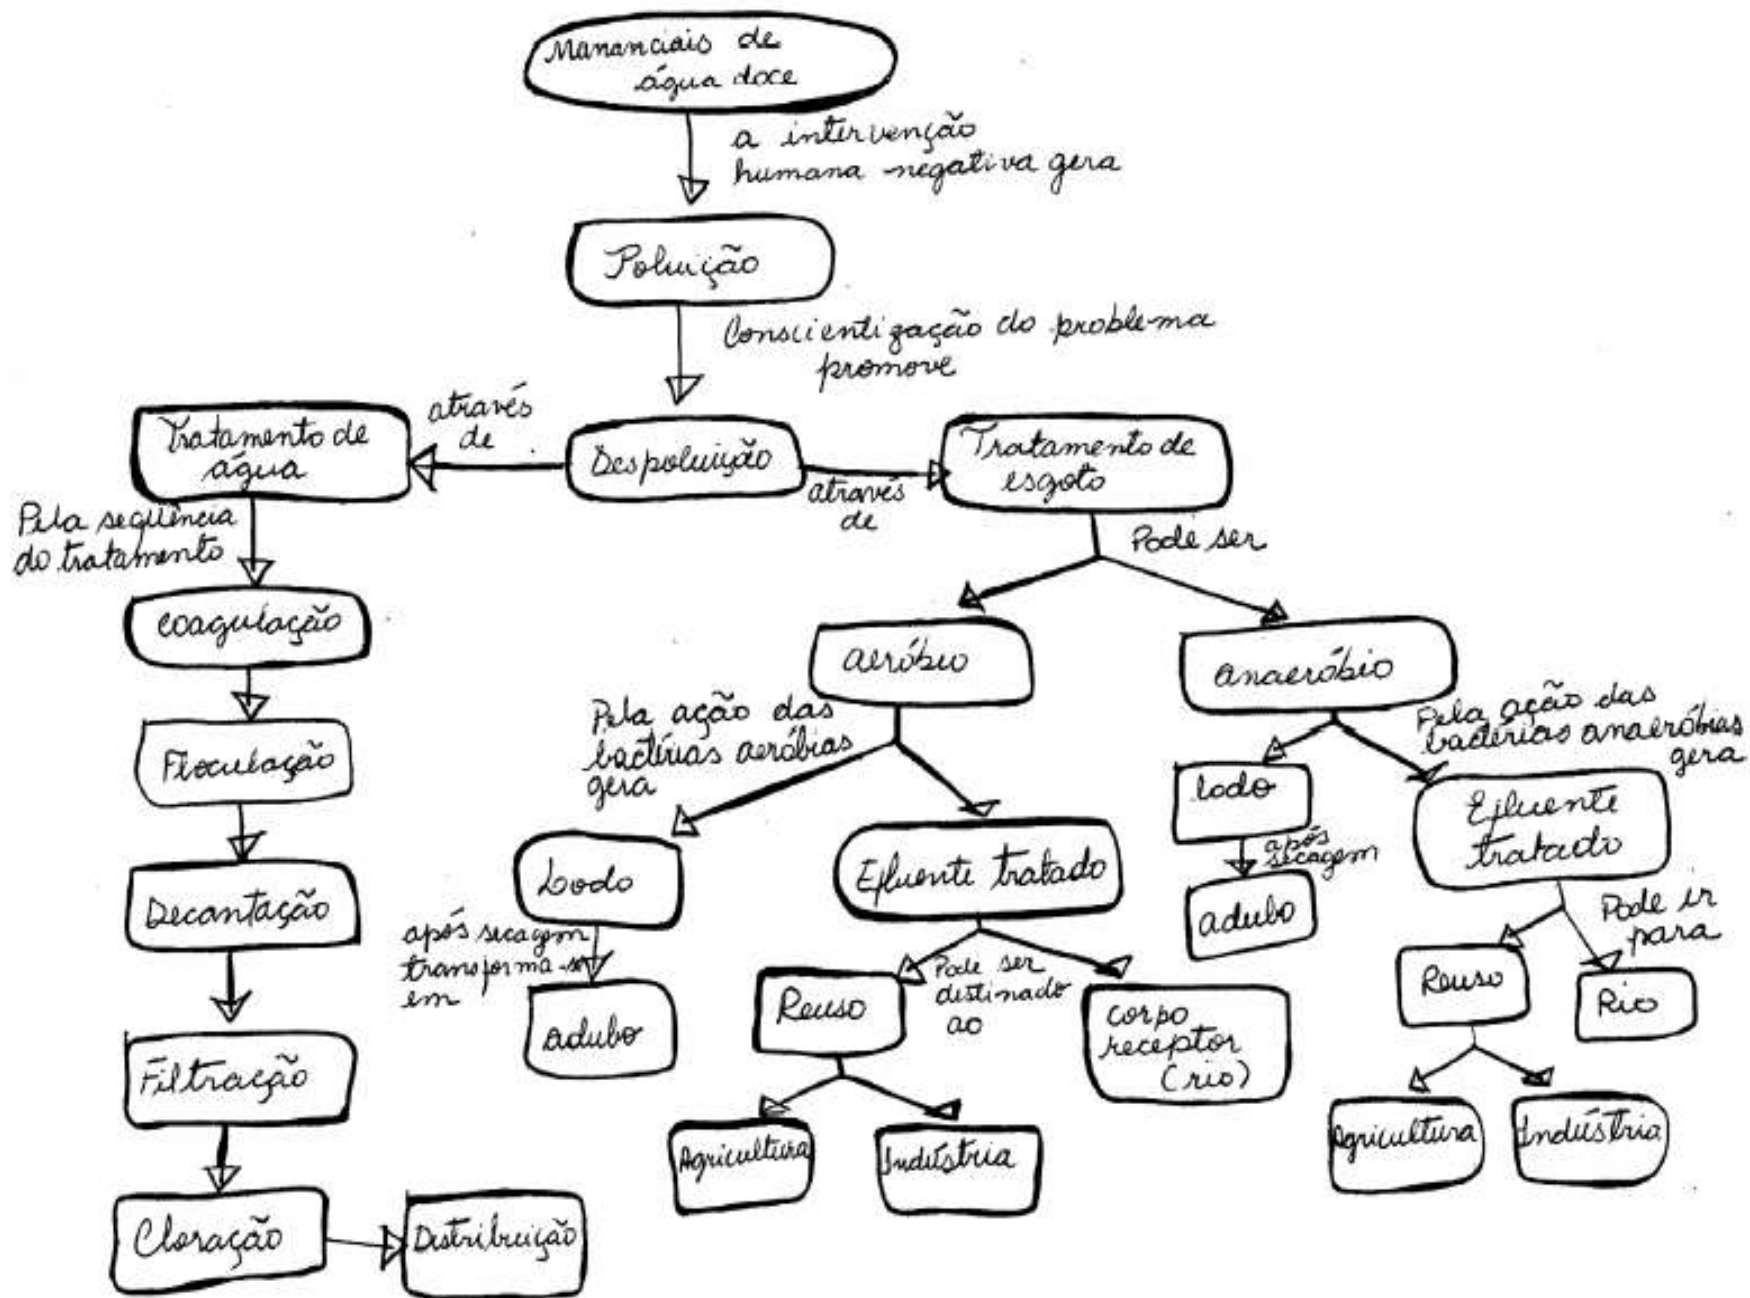 Mananciais de
água doce
a intervenção
humana negativa gera
Poluição
Conscientização do problema
promove
Despoluição
através
de
Tratamento de
água
através
de
Tratamento de
esgoto
Pela seqüência
do tratamento
Coagulação
Floculação
Decantação
Filtração
Cloração
Distribuição
Pode ser
aeróbio
Pela ação das
bactérias aeróbias
gera
Lodo
após secagem
transforma-se
em
adubo
Efluente tratado
Pode ser
destinado
ao
Reuso
Agricultura
Indústria
corpo
receptor
(rio)
anaeróbio
Pela ação das
bactérias anaeróbias
gera
Lodo
após
secagem
adubo
Efluente
tratado
Pode ir
para
Reuso
Rio
Agricultura
Indústria